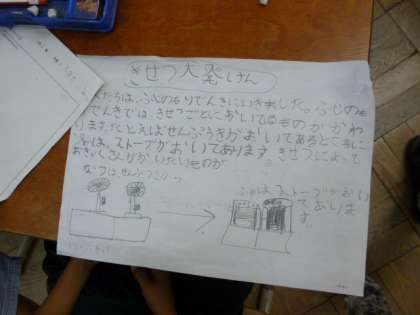 きせつ大発けん
たちは、ふじのもりでんきにいきました。ふじのも
でんきでは、きせつごとにおいてるものがかわ
ります。たとえばせんぷうきがおいてあるところに
は、ストーブがおいてあります。きせつによって
おきゃくさんがかいたいものが
なつはせんぷうき
ふゆはストーブがおい
てありま
す。